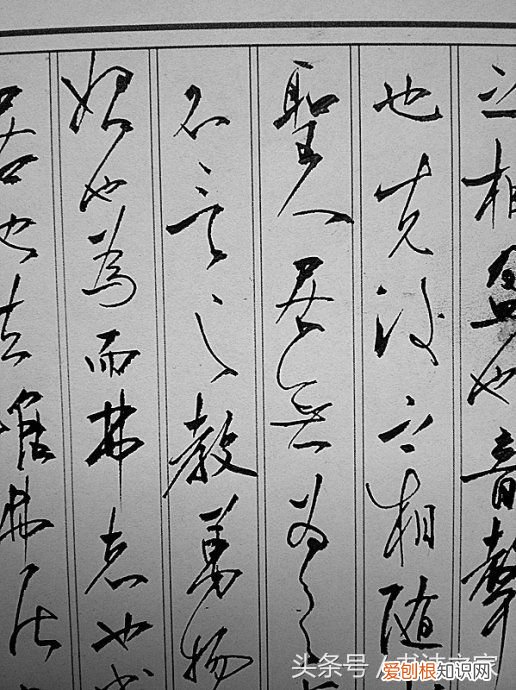 之相盈也音聲
也先後之相隨
聖人居无為之
不言之教萬物
始也為而弗志也
居也夫唯弗居
头条号 / 书法之家
爱刨根知识网